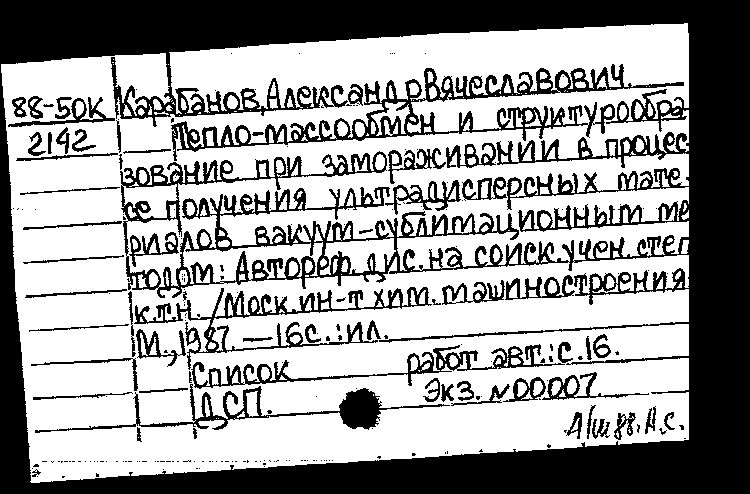 88-50К Карабанов, Александр Вячеславович.
2142 Тепло-массообмен и структурообра
зование при замораживании в процес-
се получения ультрадисперсных мате-
риалов вакуум-сублимационным ме
тодом: Автореф. дис. на соиск. учен. степ
к.т.н. / Моск. ин-т хим. машиностроения
М., 1987. — 16с.: ил.
Список работ авт.: с. 16.
ДСП. Экз. N00007.